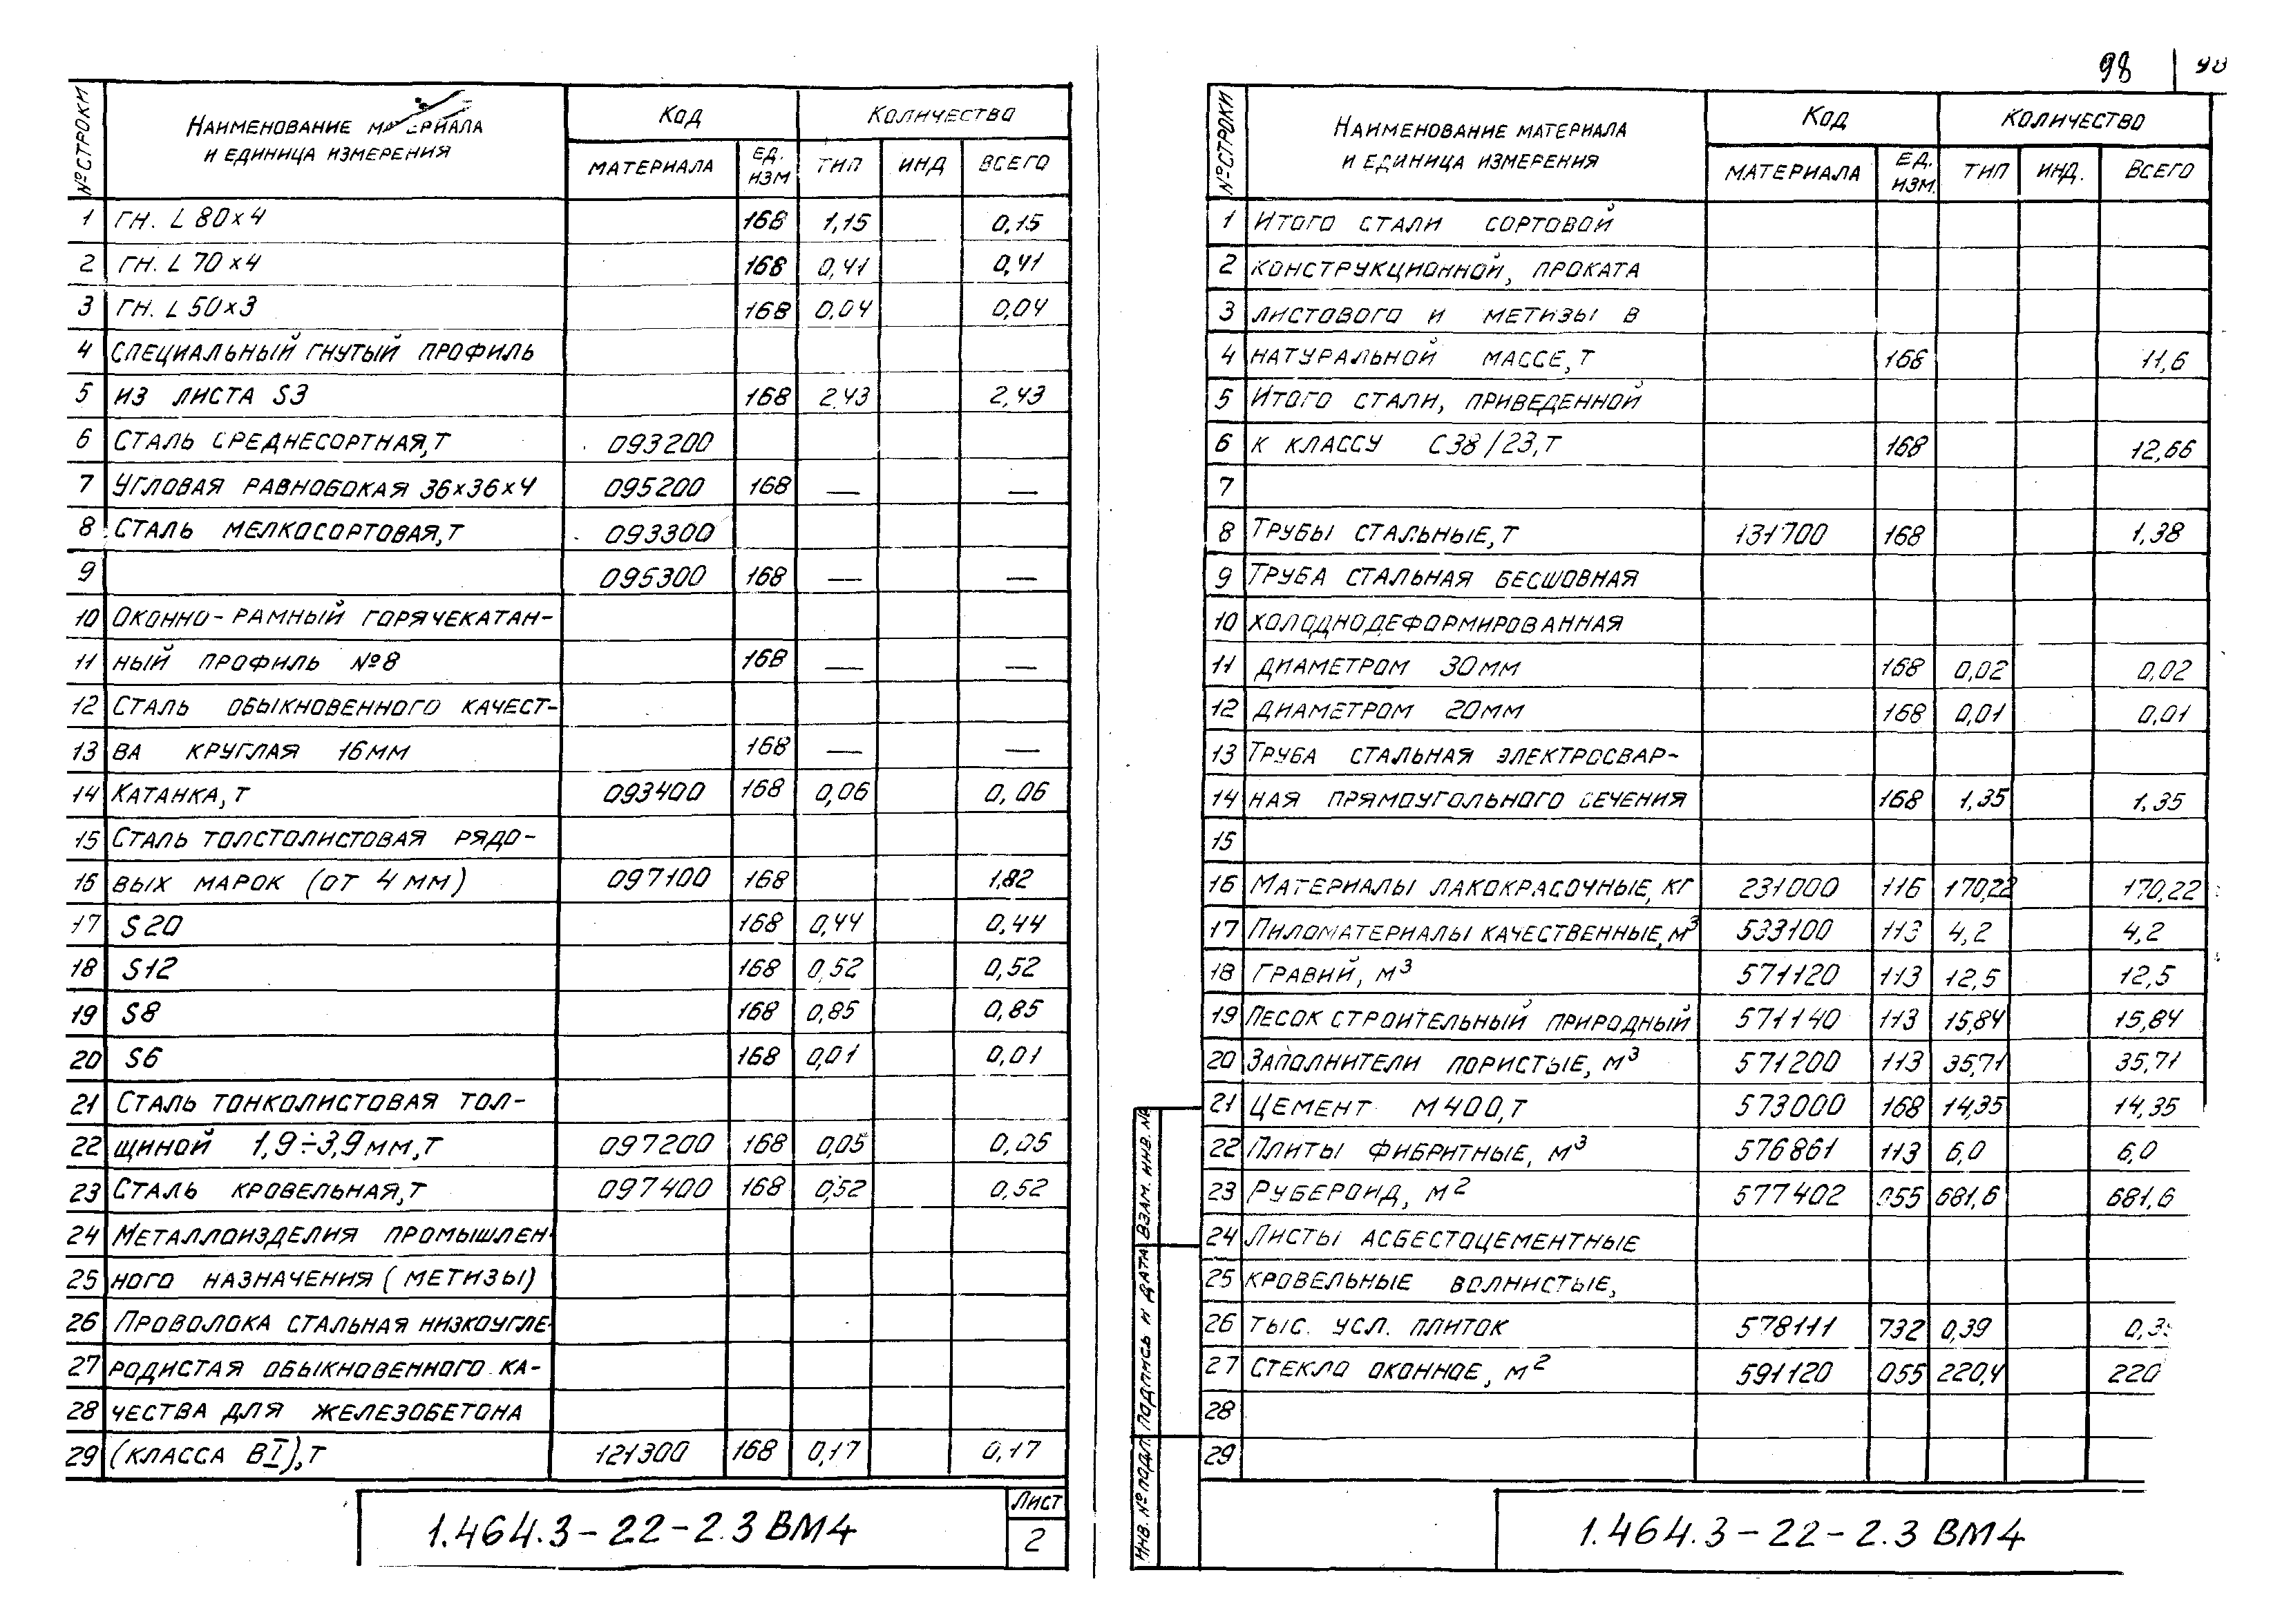 98
№ СТРОКИ НАИМЕНОВАНИЕ МАТЕРИАЛА И ЕДИНИЦА ИЗМЕРЕНИЯ КОД КОЛИЧЕСТВО
МАТЕРИАЛА ЕД. ИЗМ ТИП ИНД ВСЕГО
1 ГН. L 80×4 168 1,15 0,15
2 ГН. L 70×4 168 0,41 0,41
3 ГН. L 50×3 168 0,04 0,04
4 СПЕЦИАЛЬНЫЙ ГНУТЫЙ ПРОФИЛЬ
5 ИЗ ЛИСТА S3 168 2,43 2,43
6 СТАЛЬ СРЕДНЕСОРТНАЯ, Т 093200
7 УГЛОВАЯ РАВНОБОКАЯ 36×36×4 095200 168 — —
8 СТАЛЬ МЕЛКОСОРТОВАЯ, Т 093300
9 095300 168 — —
10 ОКОННО-РАМНЫЙ ГОРЯЧЕКАТАН-
11 НЫЙ ПРОФИЛЬ №8 168 — —
12 СТАЛЬ ОБЫКНОВЕННОГО КАЧЕСТ-
13 ВА КРУГЛАЯ 16ММ 168 — —
14 КАТАНКА, Т 093400 168 0,06 0,06
15 СТАЛЬ ТОЛСТОЛИСТОВАЯ РЯДО-
16 ВЫХ МАРОК (ОТ 4 ММ) 097100 168 1,82
17 S20 168 0,44 0,44
18 S12 168 0,52 0,52
19 S8 168 0,85 0,85
20 S6 168 0,01 0,01
21 СТАЛЬ ТОНКОЛИСТОВАЯ ТОЛ-
22 ЩИНОЙ 1,9÷3,9 ММ, Т 097200 168 0,05 0,05
23 СТАЛЬ КРОВЕЛЬНАЯ, Т 097400 168 0,52 0,52
24 МЕТАЛЛОИЗДЕЛИЯ ПРОМЫШЛЕН-
25 НОГО НАЗНАЧЕНИЯ (МЕТИЗЫ)
26 ПРОВОЛОКА СТАЛЬНАЯ НИЗКОУГЛЕ-
27 РОДИСТАЯ ОБЫКНОВЕННОГО КА-
28 ЧЕСТВА ДЛЯ ЖЕЛЕЗОБЕТОНА
29 (КЛАССА ВI), Т 121300 168 0,17 0,17
1.464.3-22-2.3 ВМ4
ЛИСТ
2
№ СТРОКИ НАИМЕНОВАНИЕ МАТЕРИАЛА И ЕДИНИЦА ИЗМЕРЕНИЯ КОД КОЛИЧЕСТВО
МАТЕРИАЛА ЕД. ИЗМ. ТИП ИНД. ВСЕГО
1 ИТОГО СТАЛИ СОРТОВОЙ
2 КОНСТРУКЦИОННОЙ, ПРОКАТА
3 ЛИСТОВОГО И МЕТИЗЫ В
4 НАТУРАЛЬНОЙ МАССЕ, Т 168 11,6
5 ИТОГО СТАЛИ, ПРИВЕДЕННОЙ
6 К КЛАССУ С38/23, Т 168 12,66
7
8 ТРУБЫ СТАЛЬНЫЕ, Т 131700 168 1,38
9 ТРУБА СТАЛЬНАЯ БЕСШОВНАЯ
10 ХОЛОДНОДЕФОРМИРОВАННАЯ
11 ДИАМЕТРОМ 30ММ 168 0,02 0,02
12 ДИАМЕТРОМ 20ММ 168 0,01 0,01
13 ТРУБА СТАЛЬНАЯ ЭЛЕКТРОСВАР-
14 НАЯ ПРЯМОУГОЛЬНОГО СЕЧЕНИЯ 168 1,35 1,35
15
16 МАТЕРИАЛЫ ЛАКОКРАСОЧНЫЕ, КГ 231000 116 170,22 170,22
17 ПИЛОМАТЕРИАЛЫ КАЧЕСТВЕННЫЕ, М³ 533100 113 4,2 4,2
18 ГРАВИЙ, М³ 571120 113 12,5 12,5
19 ПЕСОК СТРОИТЕЛЬНЫЙ ПРИРОДНЫЙ 571140 113 15,84 15,84
20 ЗАПОЛНИТЕЛИ ПОРИСТЫЕ, М³ 571200 113 35,71 35,71
21 ЦЕМЕНТ М400, Т 573000 168 14,35 14,35
22 ПЛИТЫ ФИБРИТНЫЕ, М³ 576861 113 6,0 6,0
23 РУБЕРОИД, М² 577402 055 681,6 681,6
24 ЛИСТЫ АСБЕСТОЦЕМЕНТНЫЕ
25 КРОВЕЛЬНЫЕ ВОЛНИСТЫЕ,
26 ТЫС. УСЛ. ПЛИТОК 578111 732 0,39 0,3
27 СТЕКЛО ОКОННОЕ, М² 591120 055 220,4 220
28
29
ИНВ. № ПОДЛ. ПОДПИСЬ И ДАТА ВЗАМ. ИНВ. №
1.464.3-22-2.3 ВМ4